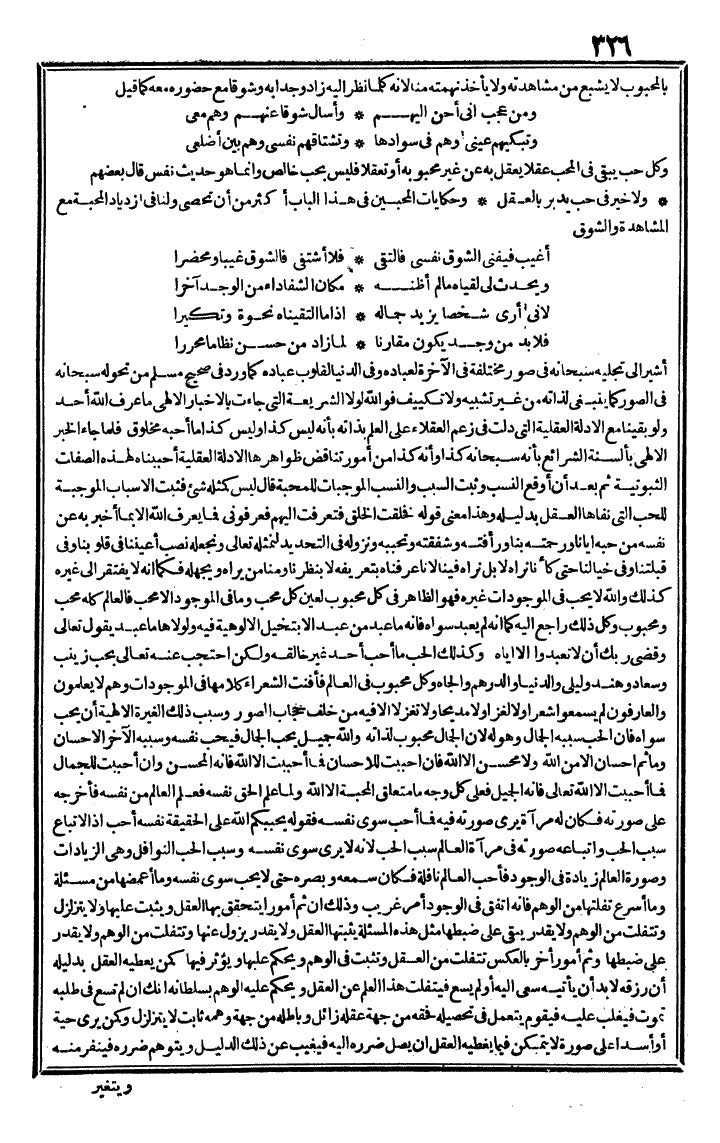 ٣٢٦
بالمحبوب لا يشبع من مشاهدته ولا يأخذ نهمته منه لانه كلما نظر اليه زاد وجدا به وشوقا مع حضوره معه كما قيل
ومن عجب انى أحن اليهـم * وأسأل شوقا عنهـم وهم معى
وتبكيهم عينى وهم فى سوادها * وتشتاقهم نفسى وهم بين أضلعى
وكل حب يبقى فى المحب عقلا يعقل به عن غير محبوبه أو تعقلا فليس بحب خالص وانما هو حديث نفس قال بعضهم
* ولا خير فى حب يدبر بالعـقل * وحكايات المحبـين فى هـذا الباب أ كـثر من أن تحصى ولنا فى ازدياد المحبـة مع
المشاهدة والشوق
أغيب فيفنى الشوق نفسى فالتقى * فلا أشتفى فالشوق غيبا ومحضرا
ويحـدث لى لقياه مالم أظنـه * مكان الشفا داء من الوجـد آخرا
لانى أرى شـخصا يزيد جماله * اذا ما التقيناه نخـوة وتكبرا
فلابد من وجـد يكون مقارنا * لمـا زاد من حسـن نظاما محررا
أشير الى تجليه سبحانه فى صور مختلفة فى الآخرة لعباده وفى الدنيا لقلوب عباده كما ورد فى صحيح مسلم من تحوله سبحانه
فى الصور كما ينبـغى لذاته من غير تشبيه ولا تكييف فوالله لولا الشريعـة التى جاءت بالاخبار الالهى ما عرف الله أحـد
ولو بقينا مع الادلة العقلية التى دلت فى زعم العقلاء على العلم بذاته بأنه ليس كذا وليس كذا ما أحبه مخلوق فلما جاء الخبر
الالهى بألسنة الشرائع بأنه سـبحانه كذا وأنه كذا من أمور تناقض ظواهرها الادلة العقلية أحببناه لهـذه الصفات
الثبوتيـة ثم بعـد أن أوقع النسب وثبت السبب والنسب الموجبات للمحبة قال ليس كمثله شئ فثبت الاسباب الموجبـة
للحب التى نفاها العـقل بدليـله وهذا معنى قوله خلقت الخلق فتعرفت اليهم فعرفونى فـا يعرف الله الا بمـا أخبر به عن
نفسه من حبه ايانا ورحمتـه بنا ورأفتـه وشفقته وتحببه ونزوله فى التحديد لنمثله تعالى ونجعله نصب أعيننا فى قلوبنا وفى
قبلتنا وفى خيالنا حتى كأ ننا نراه لا بل نراه فينا لانا عرفناه بتعريفه لا بنظرنا ومنا من يراه ويجهله فـكما انه لا يفتقر الى غيره
كـذلك والله لا يحب فى الموجودات غيره فهو الظاهر فى كل محبوب لعين كل محب وما فى الموجود الا محب فالعالم كله محب
ومحبوب وكل ذلك راجع اليه كما انه لم يعبد سواه فانه ما عبد من عبـد الا بتخيل الالوهية فيه ولولاها ما عبـد يقول تعالى
وقضى ربك أن لا تعبدوا الا اياه وكـذلك الحب ما أحب أحـد غير خالقـه ولـكن احتجب عنـه تعـالى بحب زينب
وسعاد وهنـد وليلى والدنيا والدرهم والجاه وكل محبوب فى العالم فأفنت الشعراء كلامها فى الموجودات وهم لا يعلمون
والعارفون لم يسمعوا شعرا ولا لغزا ولا مديحا ولا تغزلا الا فيه من خلف حجاب الصور وسبب ذلك الغيرة الالهية أن يحب
سواه فان الحب سببه الجمال وهو له لان الجمال محبوب لذاته والله جـميل يحب الجمال فيحب نفسه وسببه الآخر الاحسان
وما ثم احسان الا من الله ولا محسـن الا الله فان احببت للاحسان فـا أحببت الا الله فانه المحسـن وان أحببت للجمال
فـا أحببت الا الله تعالى فانه الجميل فعلى كل وجه ما متعلق المحبـة الا الله ولمـا علم الحق نفسـه فعـلم العالم من نفسه فأخرجه
على صورته فـكان له مرآة يرى صورته فيه فـا أحب سوى نفسـه فقوله يحببكم الله على الحقيقة نفسه أحب اذ الاتباع
سبب الحب واتباعه صورته فى مرآة العالم سبب الحب لانه لا يرى سوى نفسـه وسبب الحب النوافل وهى الزيادات
وصورة العالم زيادة فى الوجود فأحب العالم نافلة فـكان سمعه وبصره حتى لا يحب سوى نفسه وما أغمضها من مسئلة
وما أسرع تفلتها من الوهم فانه اتفق فى الوجود أمر غريب وذلك ان ثم أمورا يتحقق بها العقل ويثبت عليها ولا يتزلزل
وتتفلت من الوهم ولا يقدر يبقى على ضبطها مثل هذه المسئلة يثبتها العقل ولا يقدر يزول عنها وتتفلت من الوهم ولا يقدر
على ضبطها وثم أمور أخر بالعكس تتفلت من العـقل وتثبت فى الوهم ويحكم عليها ويؤثر فيها كمن يعطيه العقل بدليله
أن رزقه لابد أن يأتيـه سعى اليه أو لم يسع فيتفلت هـذا العلم عن العقل ويحكم عليه الوهم بسلطانه انك ان لم تسع فى طلبه
تموت فيغلب عليـه فيقوم يتعمل فى تحصيله فحقه من جهة عقله زائل وباطله من جهة وهمه ثابت لا يتزلزل وكمن يرى حية
أو أسـدا على صورة لا يتمـكن فيما يعطيه العقل ان يصل ضرره اليه فيغيب عن ذلك الدليـل ويتوهم ضرره فينفر منـه
ويتغير